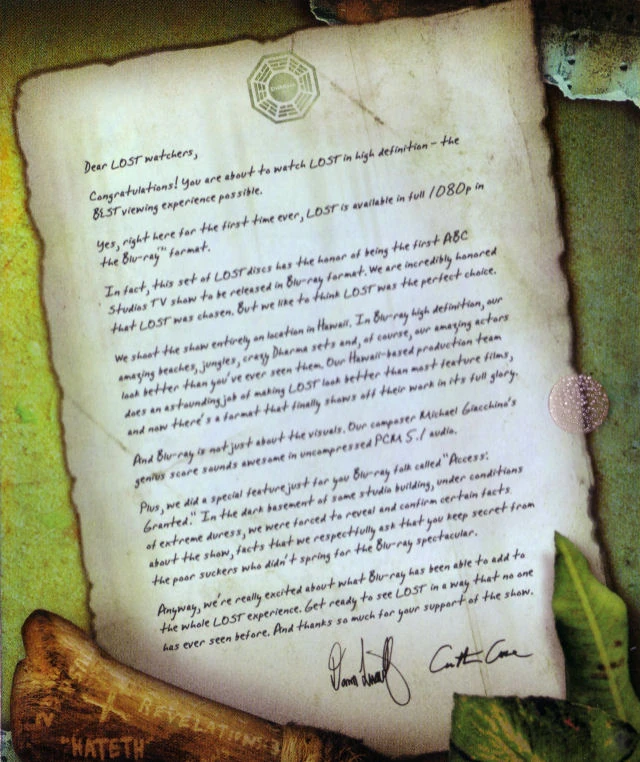 DHARMA
Dear LOST watchers,
Congratulations! You are about to watch LOST in high definition – the
BEST viewing experience possible.
Yes, right here for the first time ever, LOST is available in full 1080p in
the Blu-ray™ format.
In fact, this set of LOST discs has the honor of being the first ABC
Studios TV show to be released in Blu-ray format. We are incredibly honored
that LOST was chosen. But we like to think LOST was the perfect choice.
We shoot the show entirely on location in Hawaii. In Blu-ray high definition, our
amazing beaches, jungles, crazy Dharma sets and, of course, our amazing actors
look better than you've ever seen them. Our Hawaii-based production team
does an astounding job of making LOST look better than most feature films,
and now there's a format that finally shows off their work in its full glory.
And Blu-ray is not just about the visuals. Our composer Michael Giacchino's
genius score sounds awesome in uncompressed PCM 5.1 audio.
Plus, we did a special feature just for you Blu-ray folk called "Access:
Granted." In the dark basement of some studio building, under conditions
of extreme duress, we were forced to reveal and confirm certain facts
about the show, facts that we respectfully ask that you keep secret from
the poor suckers who didn't spring for the Blu-ray spectacular.
Anyway, we're really excited about what Blu-ray has been able to add to
the whole LOST experience. Get ready to see LOST in a way that no one
has ever seen before. And thanks so much for your support of the show.
REVELATIONS:3
"HATETH"